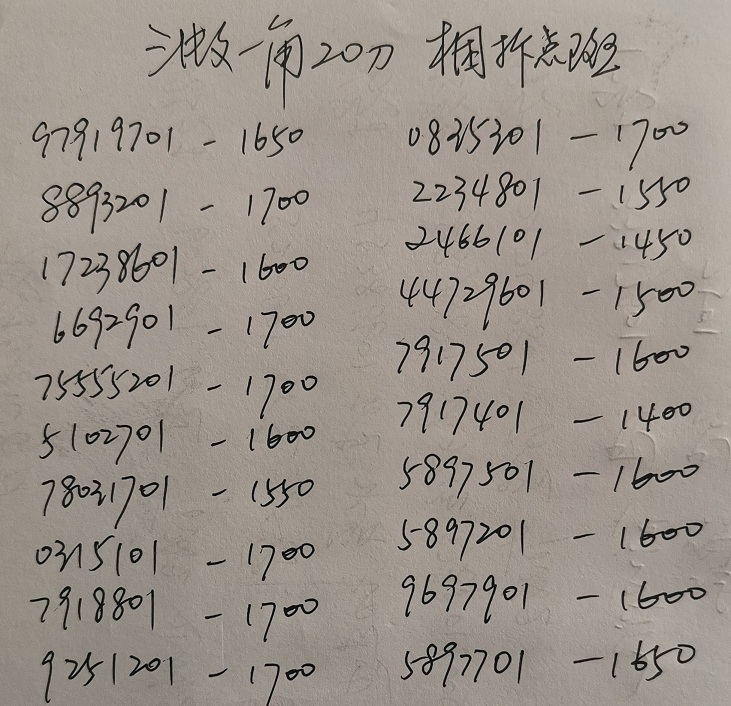 三版一角20刀 捆拆点斑
97919701 - 1650
8893201 - 1700
17238601 - 1600
6692901 - 1700
75555201 - 1700
5102701 - 1600
78031701 - 1550
0315101 - 1700
7918801 - 1700
9251201 - 1700
0835301 - 1700
2234801 - 1550
2466101 - 1450
44729601 - 1500
7917501 - 1600
7917401 - 1400
5897501 - 1600
5897201 - 1600
9697901 - 1600
5897701 - 1650